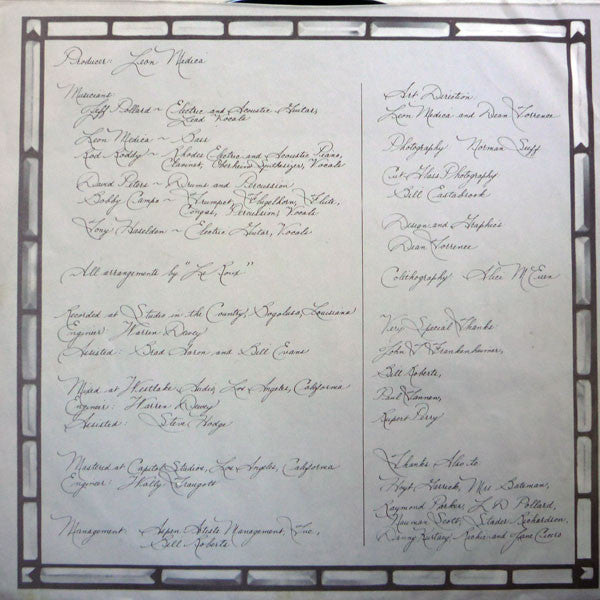 Producer: Leon Medica
Musicians:
Jeff Pollard ~ Electric and Acoustic Guitar,
Lead Vocals
Leon Medica ~ Bass
Rod Roddy ~ Rhodes Electric and Acoustic Piano,
Clavinet, Oberheim Synthesizer, Vocals
David Peters ~ Drums and Percussion
Bobby Campo ~ Trumpet, Flugelhorn, Flute,
Congas, Percussion, Vocals
Tony Haseldon ~ Electric Guitar, Vocals
All arrangements by "Le Roux"
Recorded at Studio in the Country, Bogalusa, Louisiana
Engineer: Warren Dewey
Assisted: Brad Aaron and Bill Evans
Mixed at Westlake Audio, Los Angeles, California
Engineer: Warren Dewey
Assisted: Steve Hodge
Mastered at Capitol Studios, Los Angeles, California
Engineer: Wally Traugott
Management: Aspen Artists Management, Inc.,
Bill Roberts
Art Direction
Leon Medica and Dean Torrence
Photography Norman Seeff
Cut Glass Photography
Bill Eastabrook
Design and Graphics
Dean Torrence
Calligraphy Alice McEuen
Very Special Thanks
John T Frankenheimer,
Bill Roberts,
Paul Tannen,
Rupert Perry
Thanks Also to
Hoyt Garrick, Mrs Bateman,
Raymond Parker, L D Pollard,
Nauman Scott, Slader Richardson,
Danny Richie and Jane Cicero